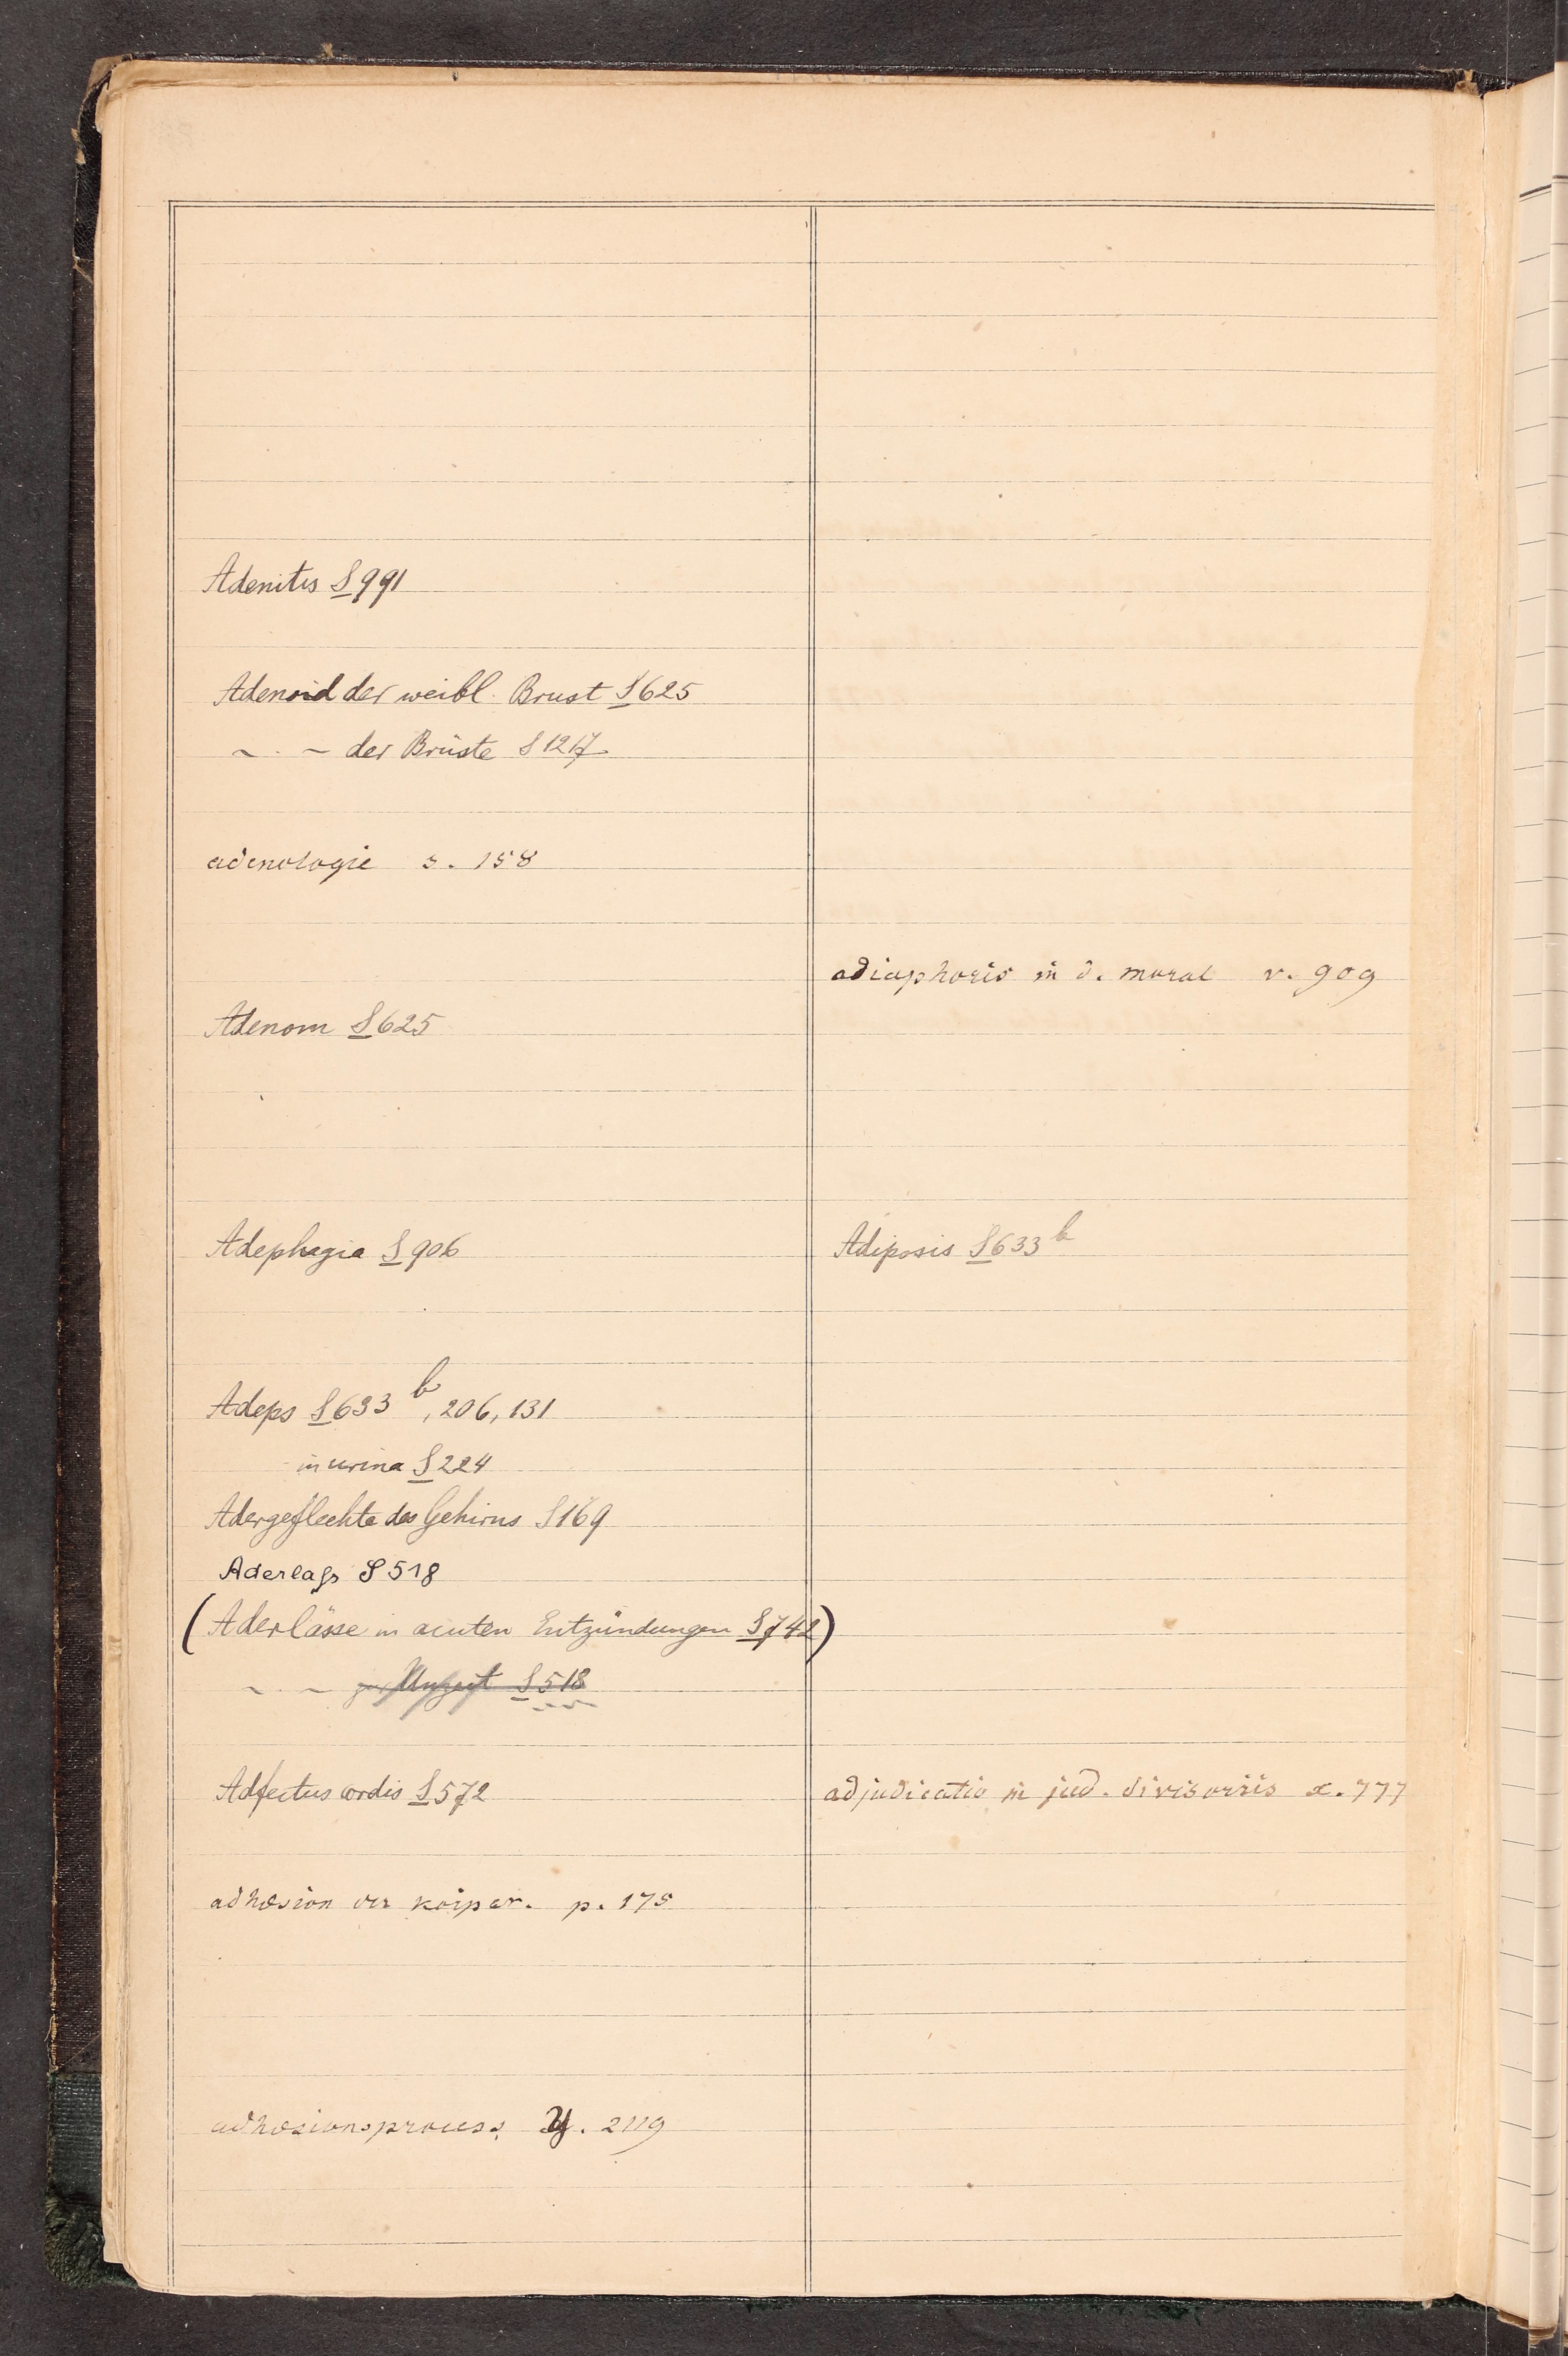 Adenitis § 991
Adenoid der weibl. Brust § 625
~ . ~ der Brüste § 1217
adenologie s. 158
Adenom § 625
Adephagia § 906
Adeps § 633 b, 206, 131
in urina § 224
Adergeflechte des Gehirns § 169
Aderlaſs § 518
(Aderlässe in acuten Entzündungen § 742)
~ . ~ zur Unzeit § 518
Adfectus cordis § 572
adhæsion der körper. p. 175
adhæsionsprocess. y. 2119
adiaphoris in d. moral v. 909
Adiposis § 633 b
adjudicatio in jud. divisoriis x. 777